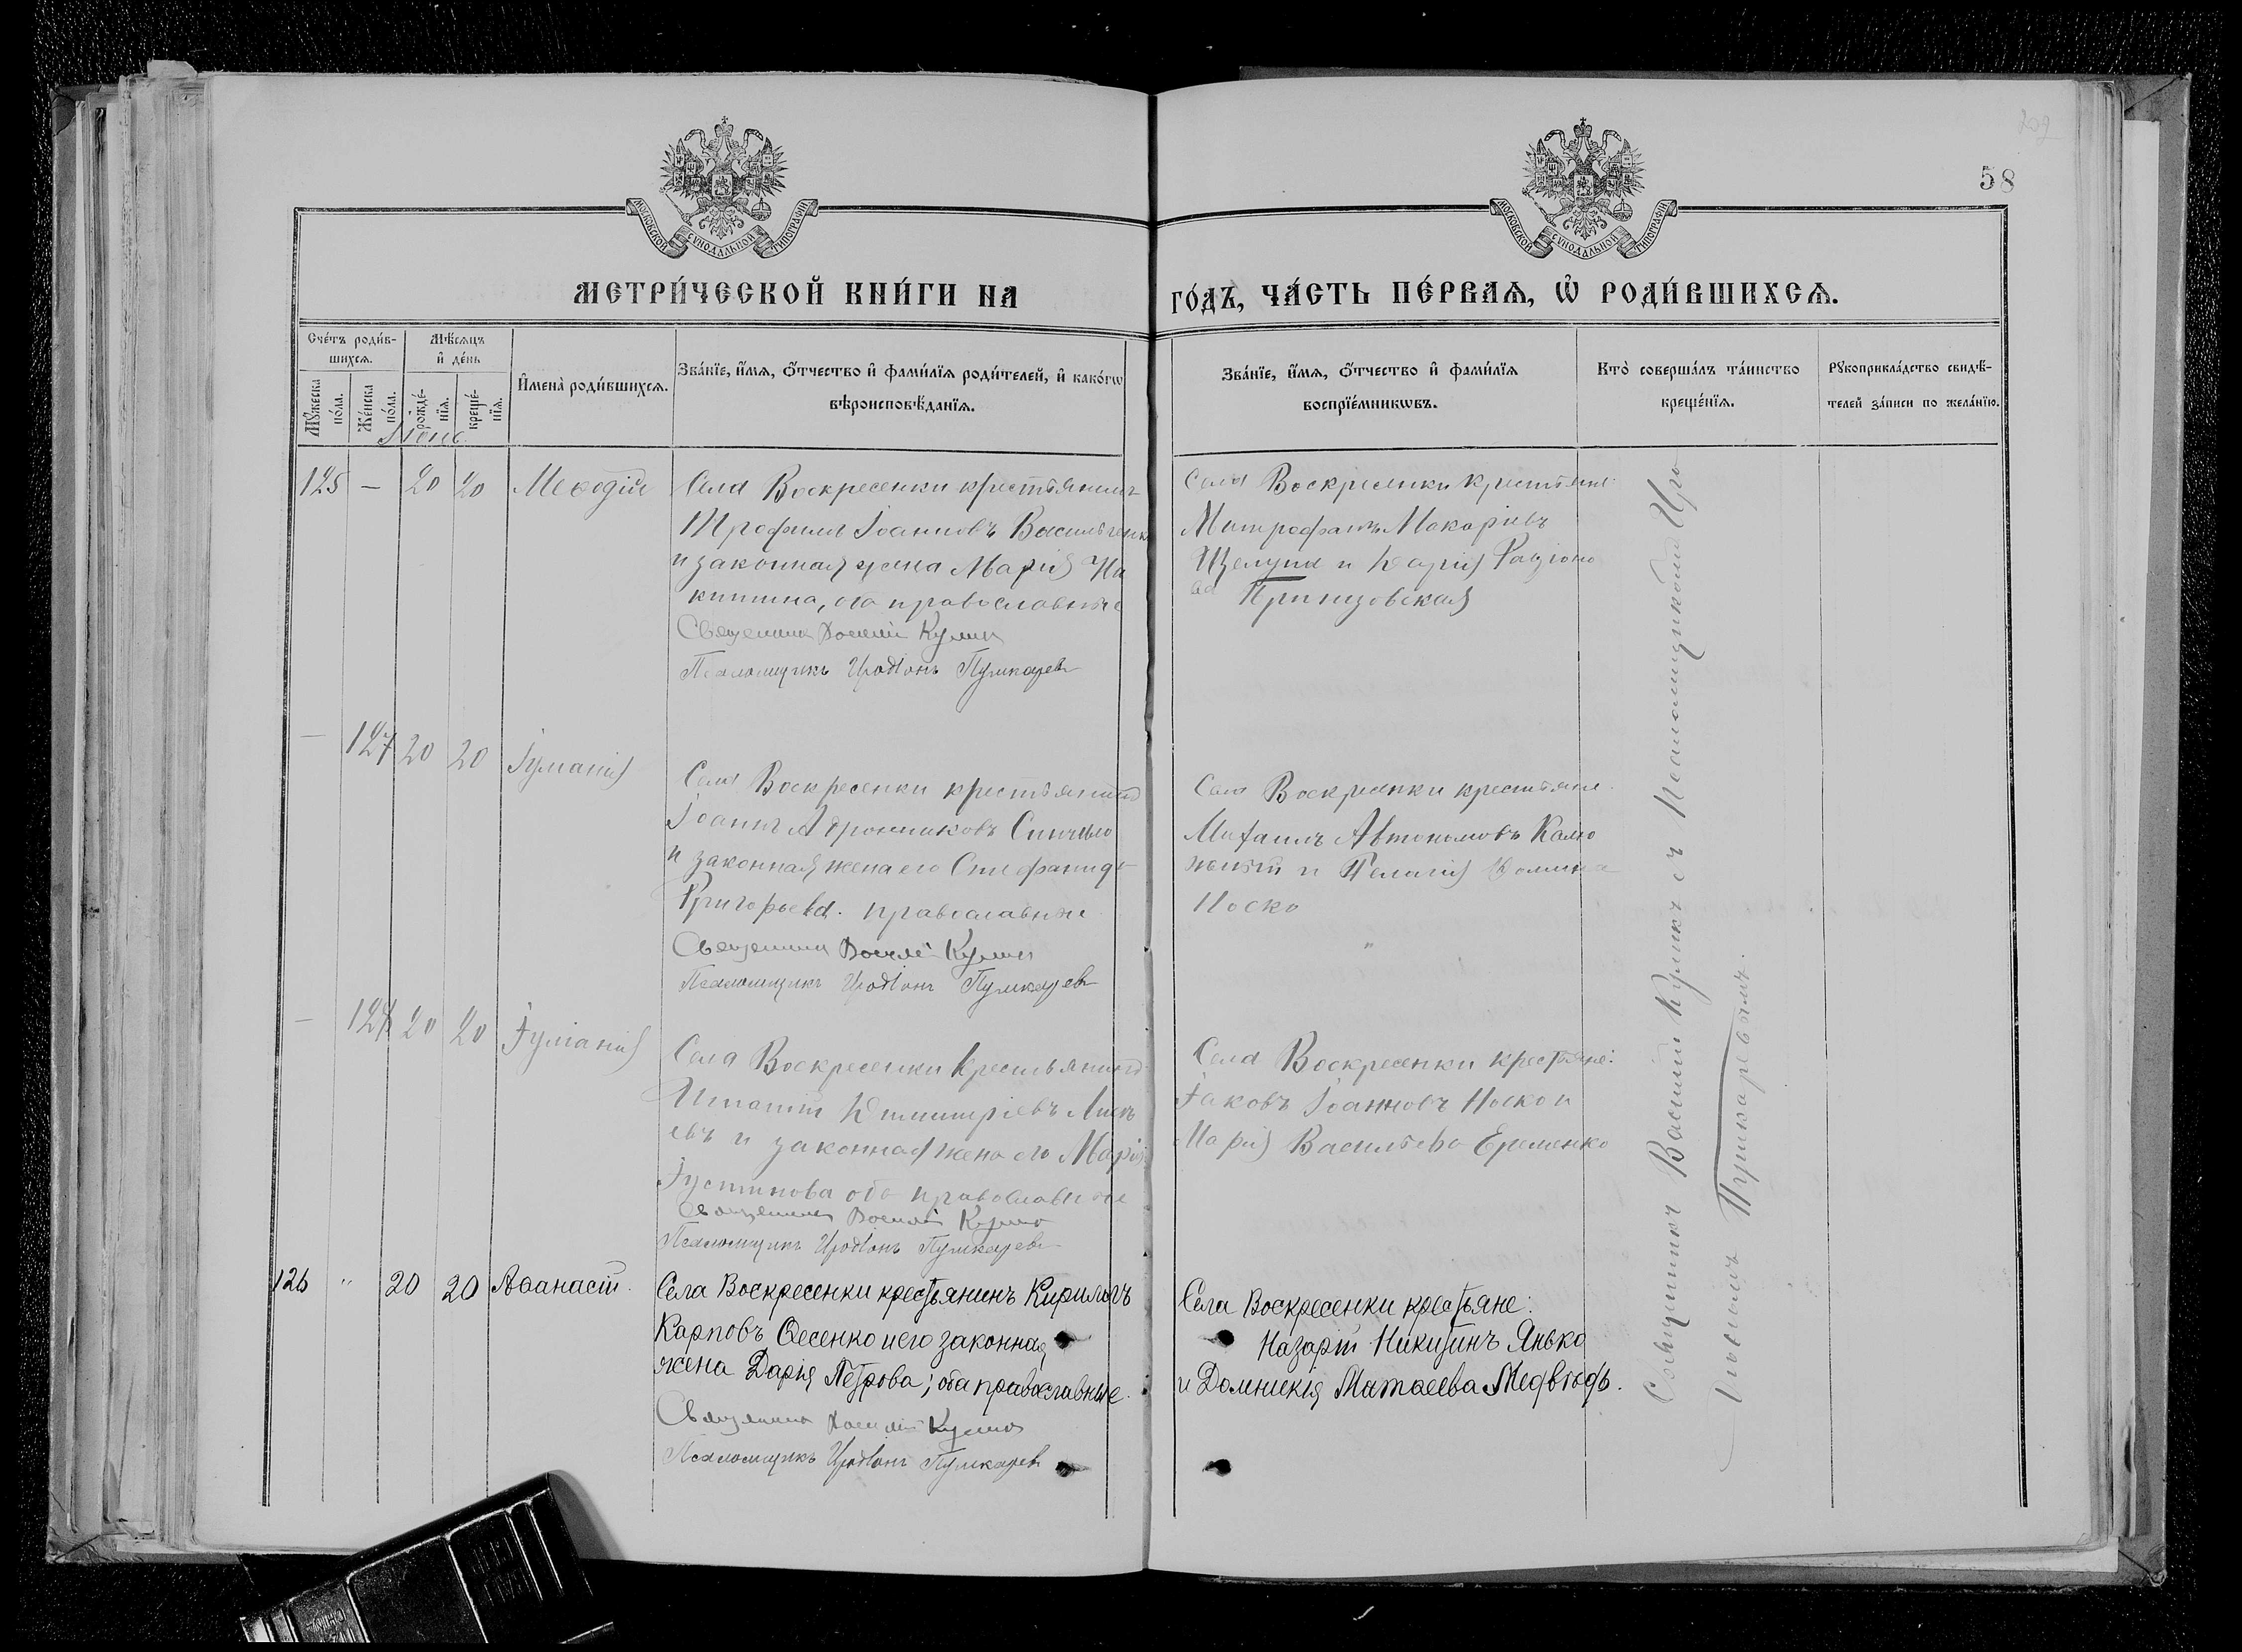 58
МОСКОВСКОЙ СѴНОДАЛЬНОЙ ТИПОГРАФІИ
МОСКОВСКОЙ СѴНОДАЛЬНОЙ ТИПОГРАФІИ
МЕТРИ́ЧЕСКОЙ КНИ́ГИ НА
ГО́ДЪ, ЧА́СТЬ ПЕ́РВАѦ, Ѡ РОДИ́ВШИХСѦ.
Сче́тъ роди́в-
шихсѧ.
Мѣ́сѧцъ
и҆ де́нь
Мꙋ́жеска по́ла.
Же́нска по́ла.
рожде́-
нїѧ.
креще́-
нїѧ.
И҆мена̀ роди́вшихсѧ.
Зва́нїе, и҆́мѧ, ѻ҆́тчество и҆ фами́лїѧ роди́телей, и҆ како́гѡ
вѣроисповѣ́данїѧ.
Зва́нїе, и҆́мѧ, ѻ҆́тчество и҆ фами́лїѧ
воспрїе́мникѡвъ.
Кто̀ соверша́лъ та́инство
креще́нїѧ.
Рꙋкоприкла́дство свидѣ́-
телей за́писи по жела́нїю.
125 — 20 20 Меѳодій
Села Воскресенки крестьянинъ
Трофимъ Іоанновъ Васильченко
и законная жена Марія
православные
Священникъ Василій Куликъ
Псаломщикъ Иродіонъ Пушкаревъ
Села Воскресенки крестьяне:
Митрофанъ Макаріевъ
и Дарія Родіоно
ва
— 127 20 20 Іуліанія
Села Воскресенки крестьянинъ
Іоаннъ Андрониковъ
и законная жена его Стефанида
Григорьева. православные
Священникъ Василій Куликъ
Псаломщикъ Иродіонъ Пушкаревъ
Села Воскресенки крестьяне
Михаилъ Автономовъ Калю
жный и Пелагія
Носко
— 20 20 Іуліанія
Села Воскресенки крестьянинъ
Игнатій Димитріевъ
евъ и законная жена его Марія
Іустинова оба православные
Священникъ Василій Куликъ
Псаломщикъ Иродіонъ Пушкаревъ
Села Воскресенки крестьяне:
Іаковъ Іоанновъ Носко и
Марія Васильева Еременко
126 " 20 20 Аѳанасій.
Села Воскресенки крестьянинъ Кириллъ
Карповъ и его законная
жена Дарія Петрова; оба православные.
Священникъ Василій Куликъ
Псаломщикъ Иродіонъ Пушкаревъ
Села Воскресенки крестьяне:
Назарій Никитинъ Янько
и Домникія Матѳеева Медвѣдь.
Священникъ Василій Куликъ съ Псаломщикомъ Иро
діономъ Пушкаревымъ.